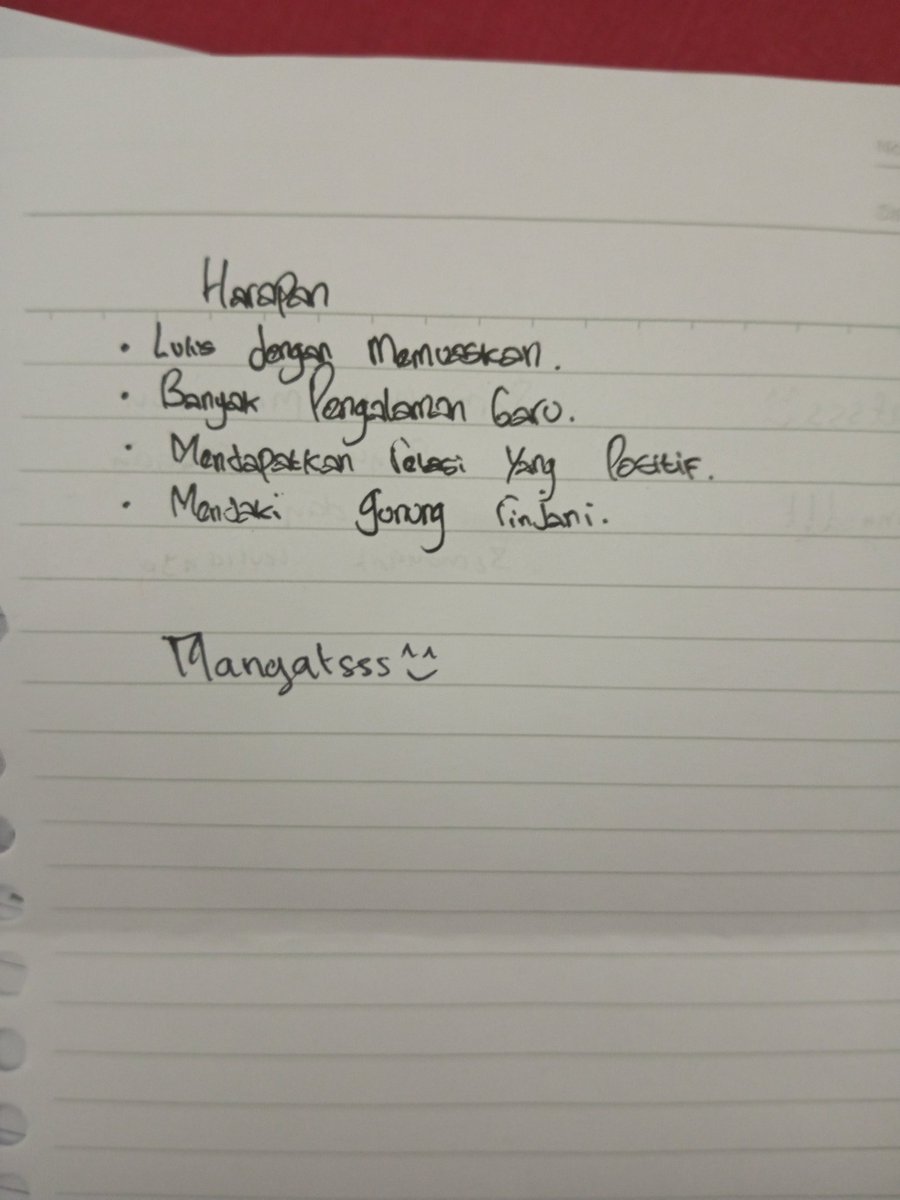 Harapan
• Lulus dengan Memuaskan.
• Banyak Pengalaman baru.
• Mendapatkan relasi yang Positif.
• Mendaki gunung rinjani.
Mangatsss ^^